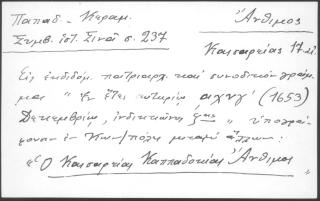 Παπαδ - Κεραμ.
Ἄνθιμος
Συμβ. ἱστ. Σινᾶ σ. 237
Καισαρείας 17 αἰ.
Εἰς ἐκδιδόμ. πατριαρχ. καὶ συνοδικὸν γράμ-
μα " ἐν ἔτει σωτηρίῳ αχνγ' (1653)
Δεκεμβρίῳ, ἰνδικτιῶνος ζης " ὑπογρά-
φουσι ἐν Κων/πόλει μεταξὺ ἄλλων:
"Ὁ Καισαρείας Καππαδοκίας Ἄνθιμος
"